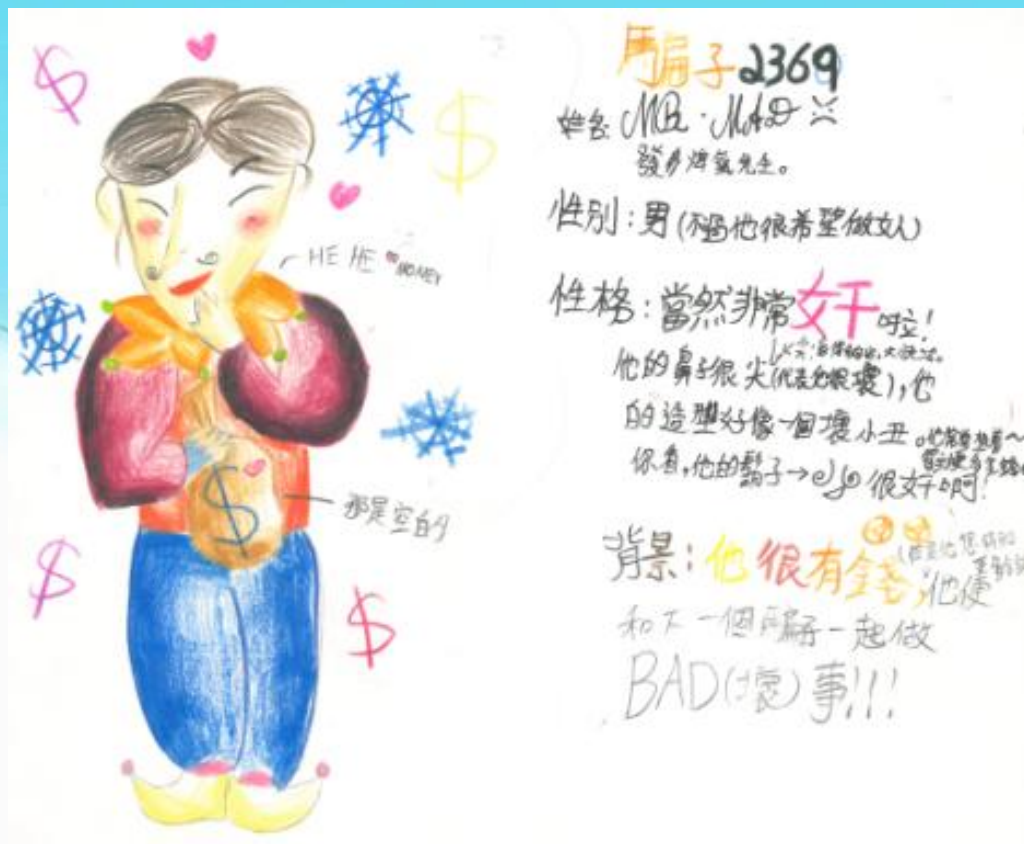 HE HE MONEY
那是空的
騙子2369
姓名: MR. MAD
發多脾氣先生。
性別：男(不過他很希望做女人)
性格：當然非常奸啦！
他的鼻子很尖(代表他很壞)，他
的造型好像一個壞小丑。
你看，他的鬍子→ 很奸啊！
背景：他很有錢，他便
和下一個騙子一起做
BAD(壞)事!!!